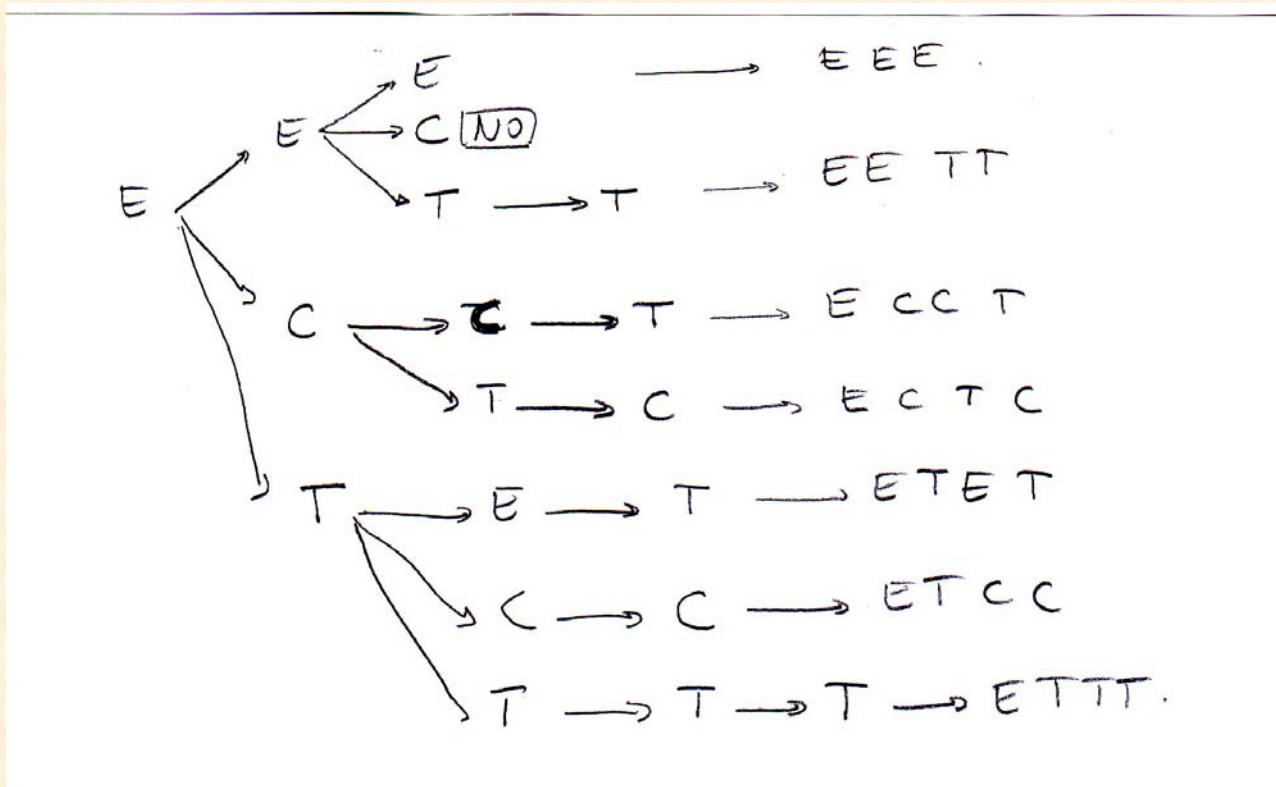 E → EEE.
E → C NO
E → T → T → EE TT
C → C → T → E CC T
T → C → E C T C
T → E → T → E T E T
C → C → E T C C
T → T → T → E T T T.